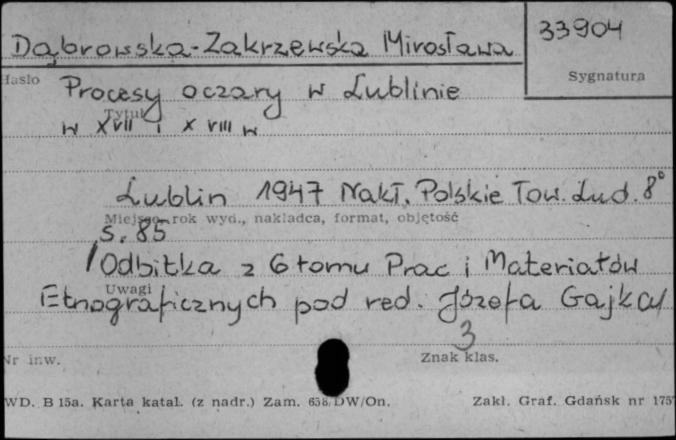 33904
Dąbrowska-Zakrzewska Mirosława
Hasło
Sygnatura
Procesy oczary w Lublinie
Tytuł
w XVII i XVIII w
Lublin 1947 Nakł. Polskie Tow. Lud. 8°
Miejsce, rok wyd., nakładca, format, objętość
s. 85
/Odbitka z 6 tomu Prac i Materiałów
Uwagi
Etnograficznych pod red. Józefa Gajka/
3
Nr inw.
Znak klas.
WD. B 15a. Karta katal. (z nadr.) Zam. 658/DW/On.
Zakł. Graf. Gdańsk nr 175